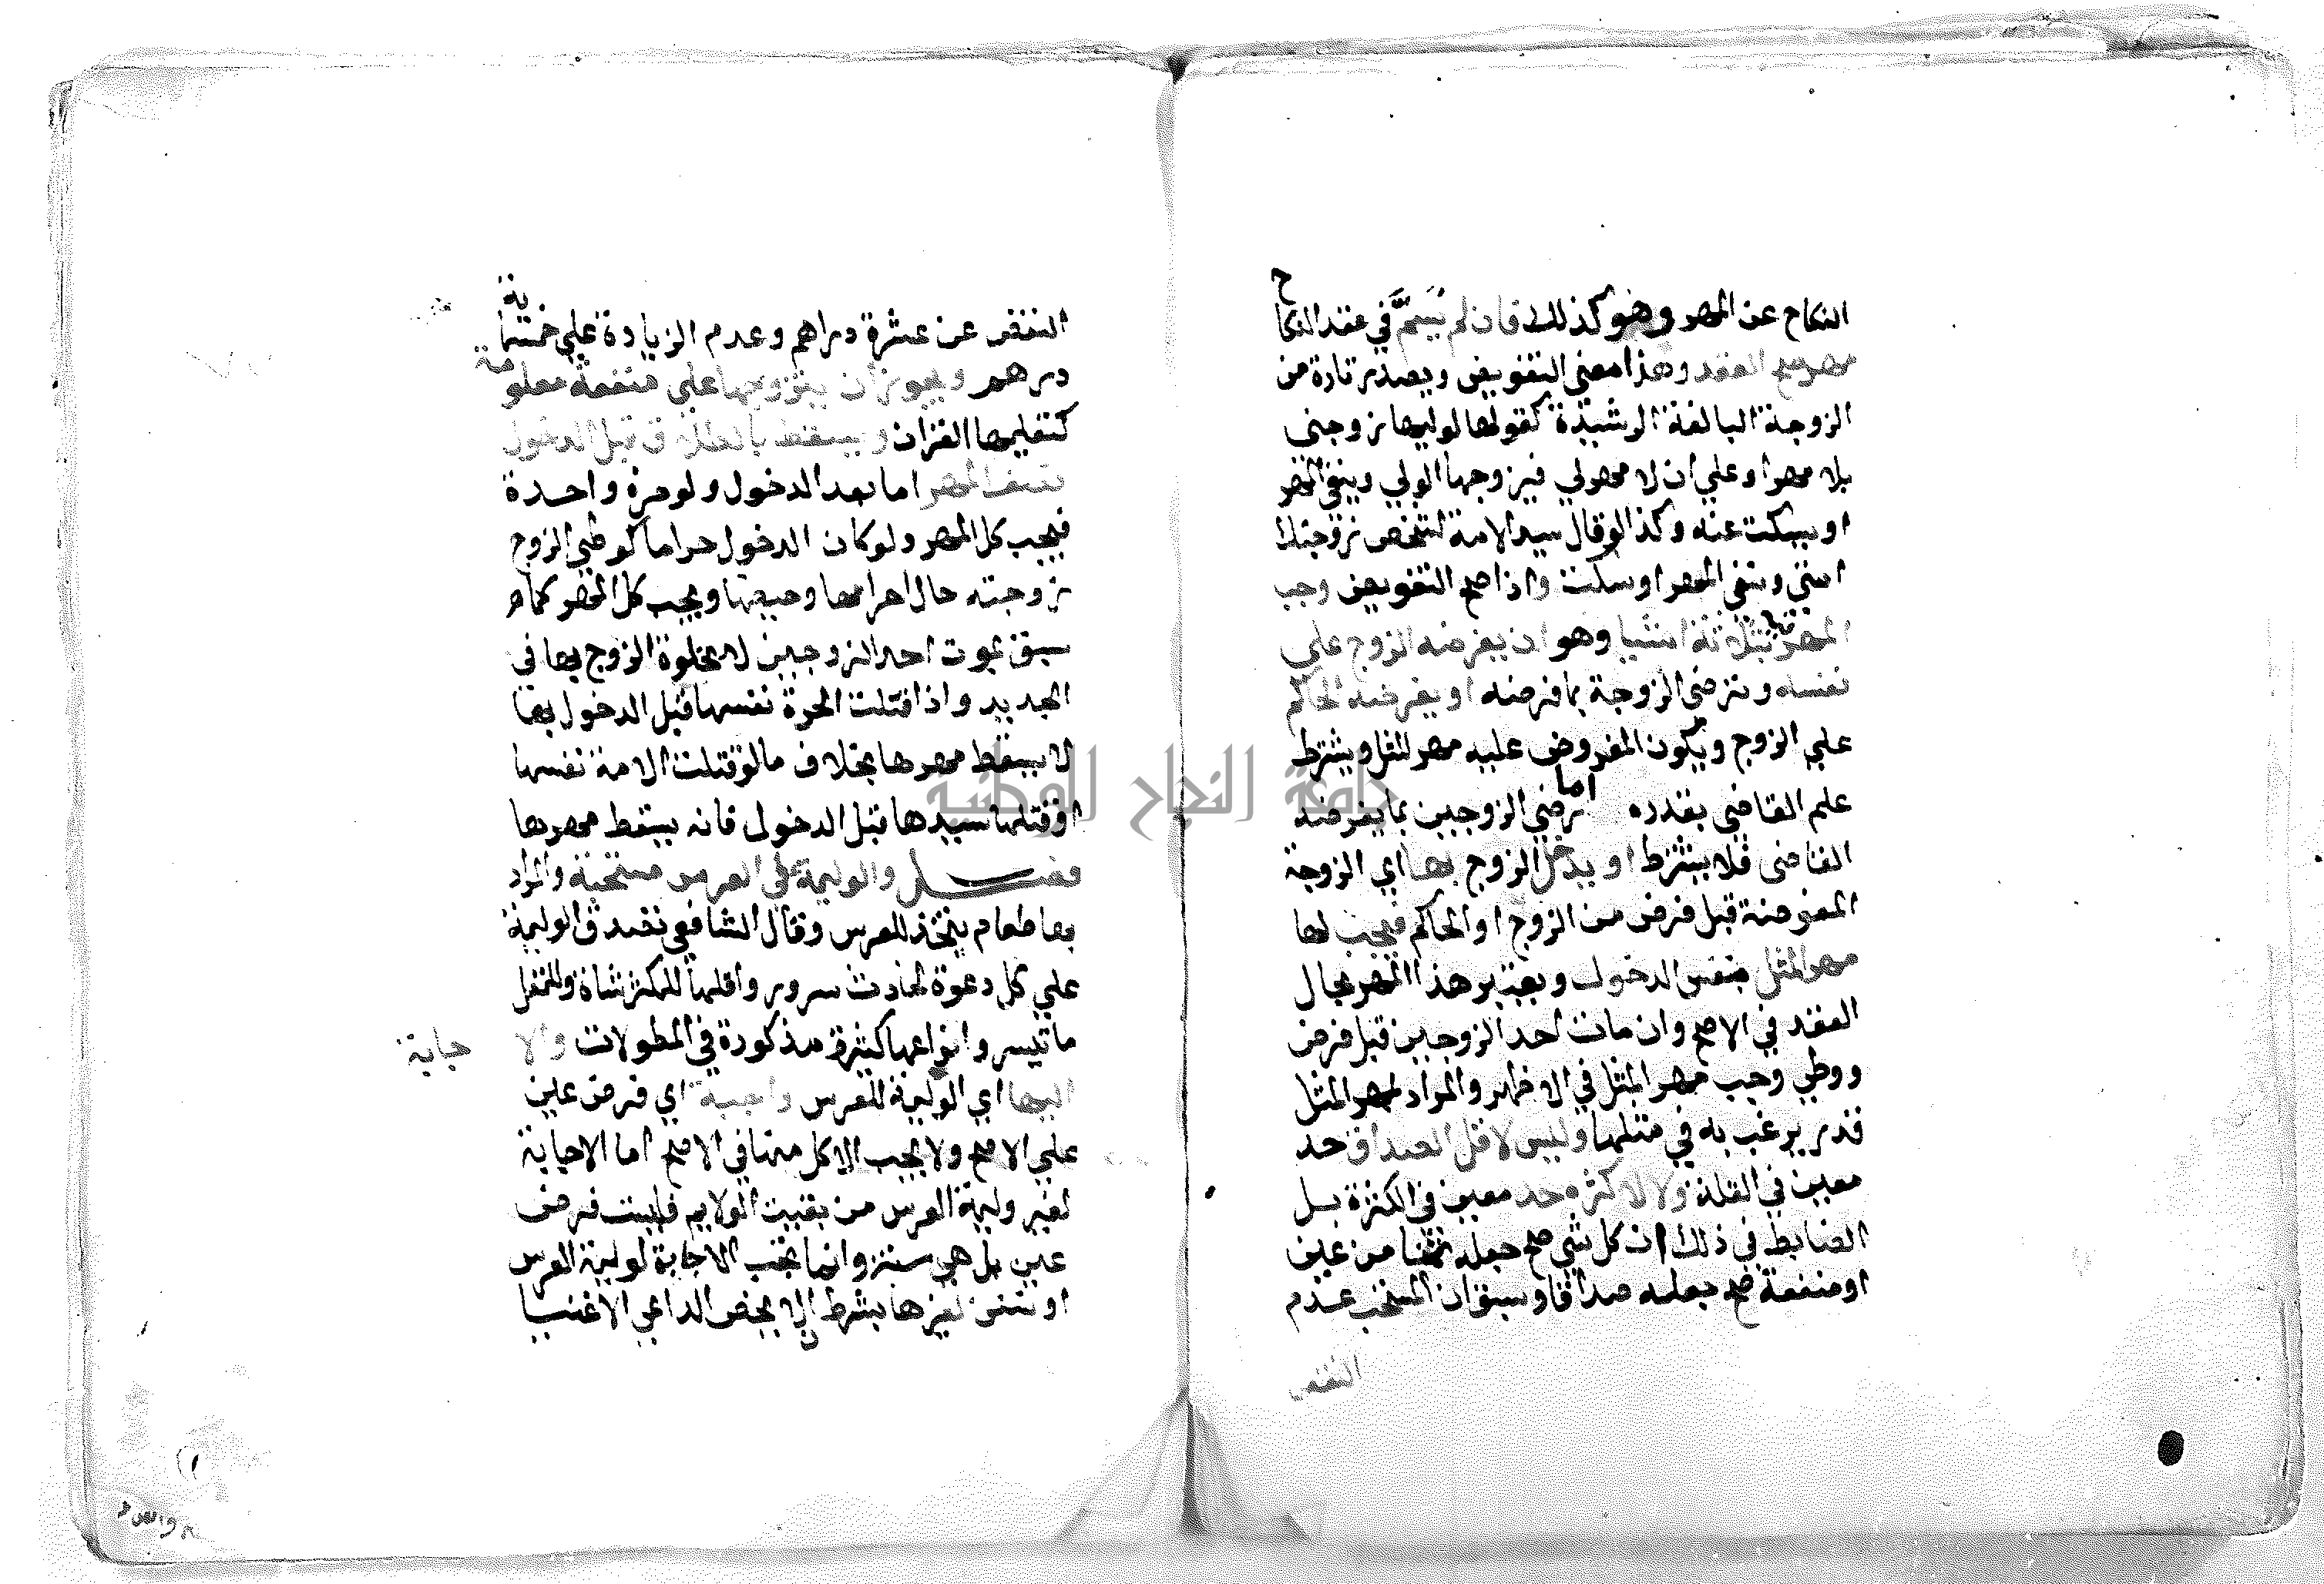 النكاح عن المهر وهو كذلك فان لم يُسَمَّ في عقد النكاح
مهر صح العقد وهذا معني التفويض ويصدر تارة من
الزوجة البالغة الرشيدة كقولها لوليها زوجني
بلا مهر او علي ان لا مهر لي فيزوجها الولي وينفي المهر
او يسكت عنه وكذا لو قال سيد الامة لشخص زوجتك
امتي ونفي المهر او سكت واذا صح التفويض وجب
المهر فيها بثلاثة اشيا وهو ان يفرضه الزوج علي
نفسه وترضي الزوجة بما فرضه او يفرضه الحاكم
علي الزوج ويكون المفروض عليه مهر المثل ويشترط
علم القاضي بقدره اما رضي الزوجين بما يفرضه
القاضي فلا يشترط او يدخل الزوج بها اي الزوجة
المفوضة قبل فرض من الزوج او الحاكم فيجب لها
مهر المثل بنفس الدخول ويعتبر هذا المهر بحال
العقد في الاصح وان مات احد الزوجين قبل فرض
ووطي وجب مهر المثل في الاظهر والمراد بمهر المثل
قدر يرغب به في مثلها وليس لاقل الصداق حد
معين في القلة ولا لاكثره حد معين في الكثرة بل
الضابط في ذلك ان كل شي صح جعله ثمنا من عين
او منفعة صح جعله صداقا وسبق ان المستحب عدم
النقص
النقص عن عشرة دراهم وعدم الزيادة علي خمسماية
درهم ويجوز ان يتزوجها علي منفعة معلومة
كتعليمها القران ويسقط بالطلاق قبل الدخول
نصف المهر اما بعد الدخول ولو مرة واحدة
فيجب كل المهر ولو كان الدخول حراما كوطي الزوج
زوجته حال احرامها وحيضها ويجب كل المهر كما
سبق بموت احد الزوجين لا بخلوة الزوج بها في
الجديد واذا قتلت الحرة نفسها قبل الدخول بها
لا يسقط مهرها بخلاف ما لو قتلت الامة نفسها
او قتلها سيدها قبل الدخول فانه يسقط مهرها
فصل والوليمة علي العرس مستحبة والمراد
بها طعام يتخذ للعرس وقال الشافعي تصدق الوليمة
علي كل دعوة لحادث سرور واقلها للمكثر شاة وللمقل
ما تيسر وانواعها كثيرة مذكورة في المطولات والا
جابة
اليها اي الوليمة للعرس واجبة اي فرض عين
علي الاصح ولا يجب الاكل منها في الاصح اما الاجابة
لغير وليمة العرس من بقيت الولايم فليست فرض
عين بل هي سنة وانما تجب الاجابة لوليمة العرس
او تسن لغيرها بشرط ان لا يخص الداعي الاغنيا
جامعة النجاح الوطنية